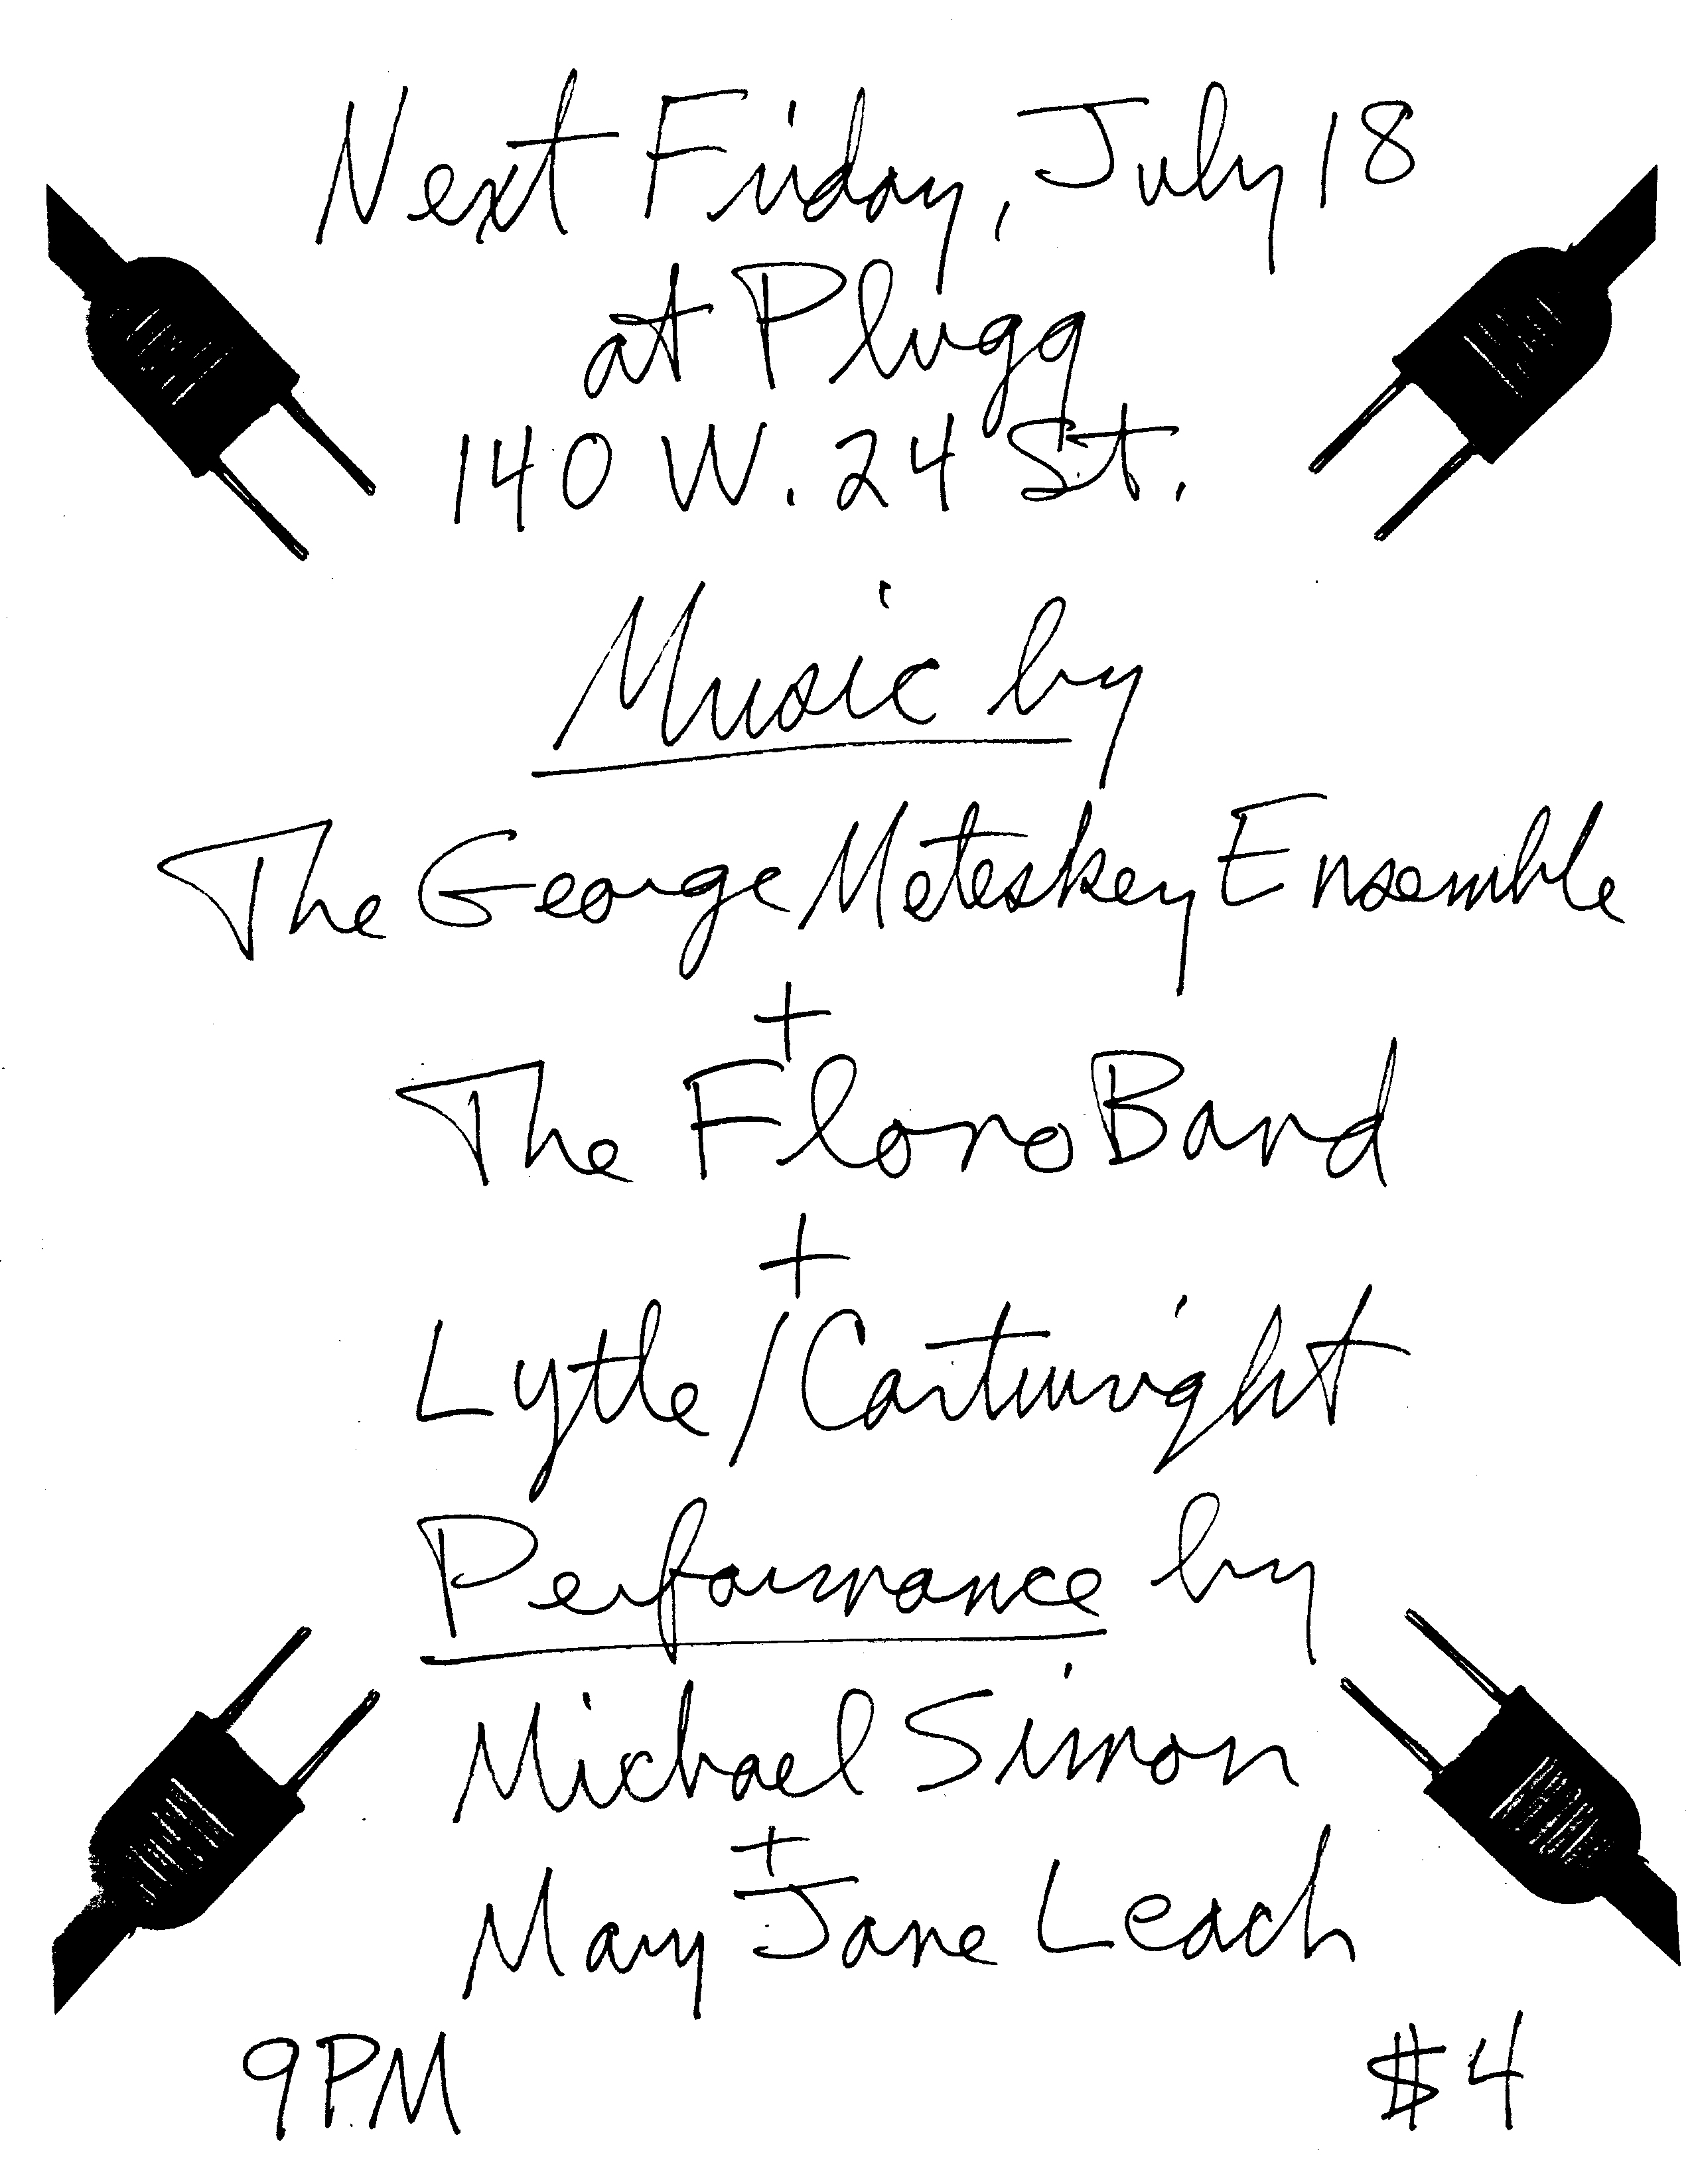 Next Friday, July 18
at Plugg
140 W. 24 St.
Music by
The George Meteskey Ensemble
+
The Flono Band
+
Lytle/Cartwright
Performance by
Michael Simon
+
Mary Jane Leach
9PM $4